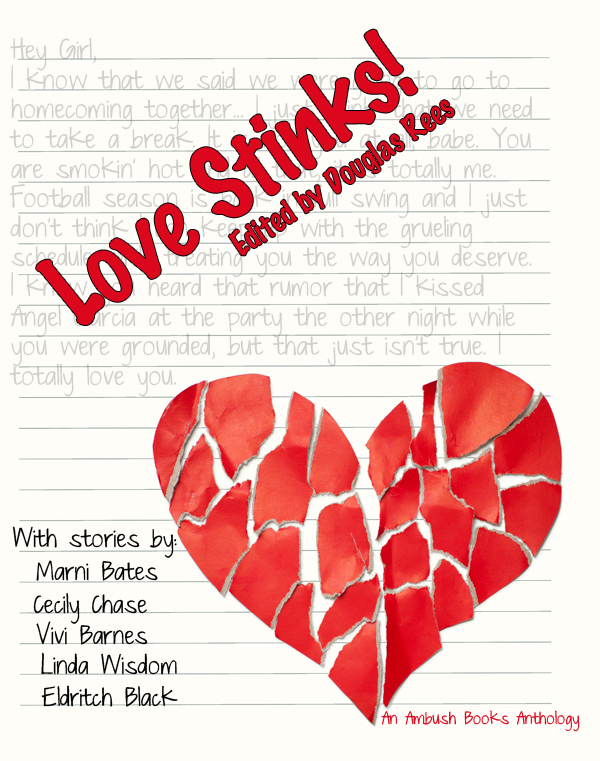 Hey Girl,
I know that we said we were to go to
homecoming together... I just that we need
to take a break. It babe. You
are smokin' hot totally me.
Football season is swing and I just
don't think with the grueling
schedule treating you the way you deserve.
I heard that rumor that I kissed
Angel Garcia at the party the other night while
you were grounded, but that just isn't true. I
totally love you.
Love Stinks!
Edited by Douglas Rees
With stories by:
Marni Bates
Cecily Chase
Vivi Barnes
Linda Wisdom
Eldritch Black
An Ambush Books Anthology